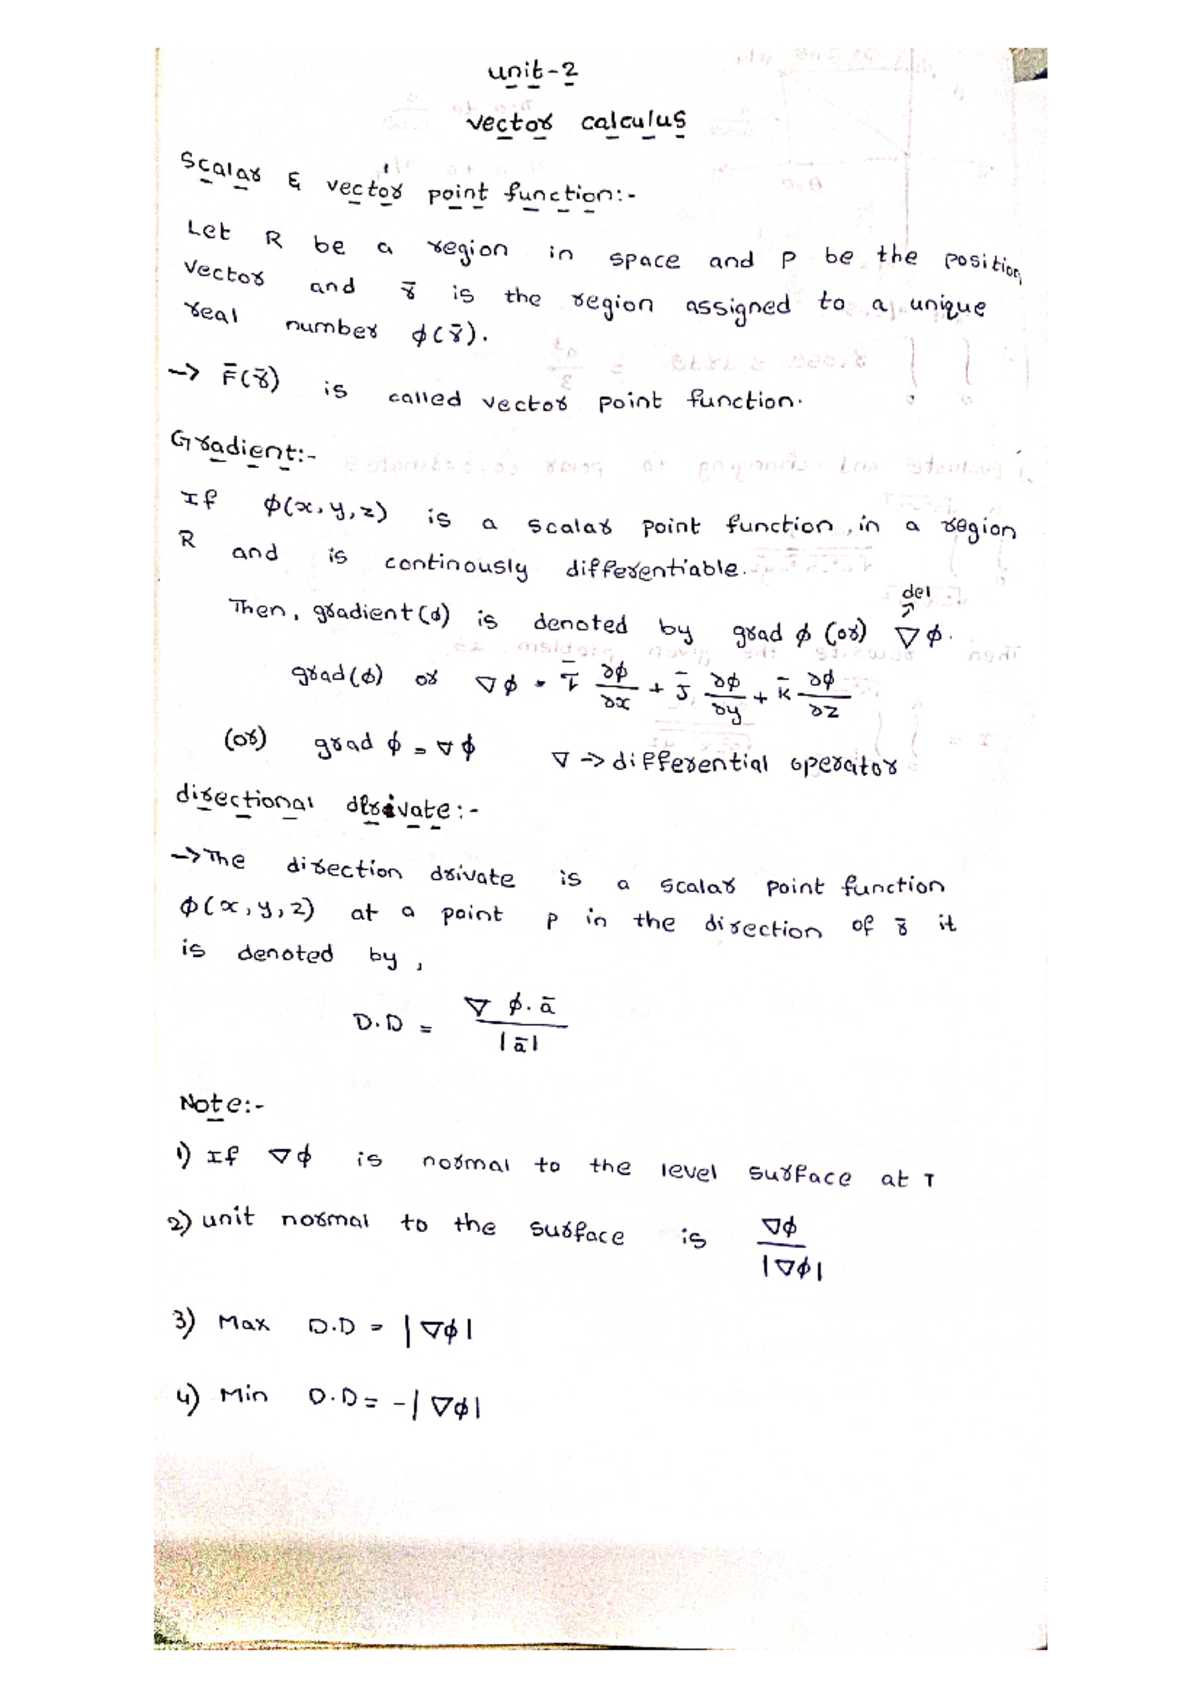 unit-2
vector calculus
Scalar & vector point function:-
Let R be a region in space and P be the position
vector and r̄ is the region assigned to a unique
real number ϕ(r̄).
-> F̄(r̄) is called vector point function.
Gradient:-
If ϕ(x,y,z) is a scalar point function, in a region
R and is continously differentiable.
del
Then, gradient(ϕ) is denoted by grad ϕ (or) ∇ϕ.
grad(ϕ) or ∇ϕ = ī ∂ϕ/∂x + j̄ ∂ϕ/∂y + k̄ ∂ϕ/∂z
(or) grad ϕ = ∇ϕ ∇ -> differential operator
directional drivate:-
-> The direction drivate is a scalar point function
ϕ(x,y,z) at a point P in the direction of r̄ it
is denoted by,
D.D = ∇ϕ.ā / |ā|
Note:-
1) If ∇ϕ is normal to the level surface at T
2) unit normal to the surface is ∇ϕ / |∇ϕ|
3) Max D.D = |∇ϕ|
4) Min D.D = -|∇ϕ|